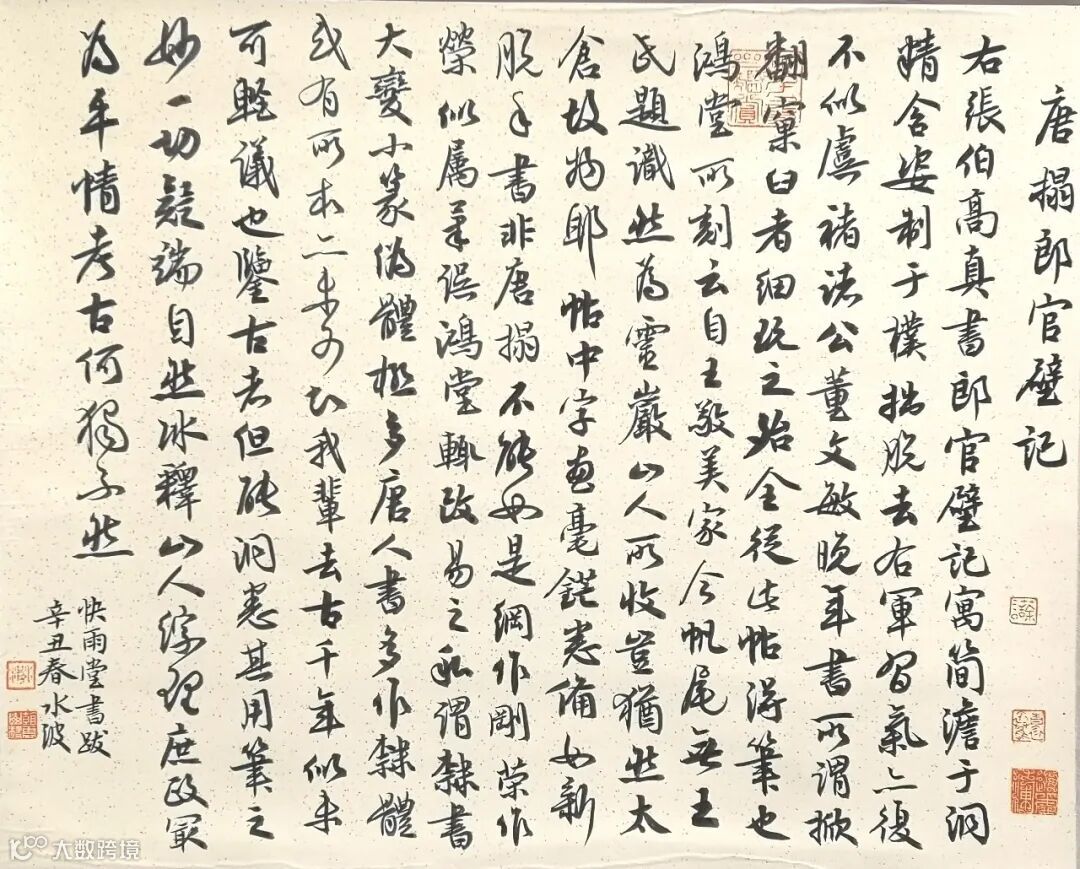 唐搨郎官壁記
右張伯高真書郎官壁記寓簡澹于洞
精含姿制于樸拙脫去右軍習氣亦復
不似虞褚諸公董文敏晚年書所謂掀
翻窠臼者細玩之殆全從此帖得筆也
鴻堂所刻云自王敬美家今帆尾無王
氏題識然為靈巖山人所收豈猶然太
倉故物耶帖中字畫毫鋩悉備如新
脫手書非唐搨不能如是綱作剛榮作
榮似屬筆誤鴻堂輒改易之私謂隸書
大變小篆偽體極多唐人書多作隸體
或有所本二未可知我輩去古千年似未
可輕議也鑒古者但能洞悉其用筆之
妙一切疑端自然冰釋山人綜理庶政最
為平情考古何獨不然
快雨堂書跋
辛丑春水波
大数跨境